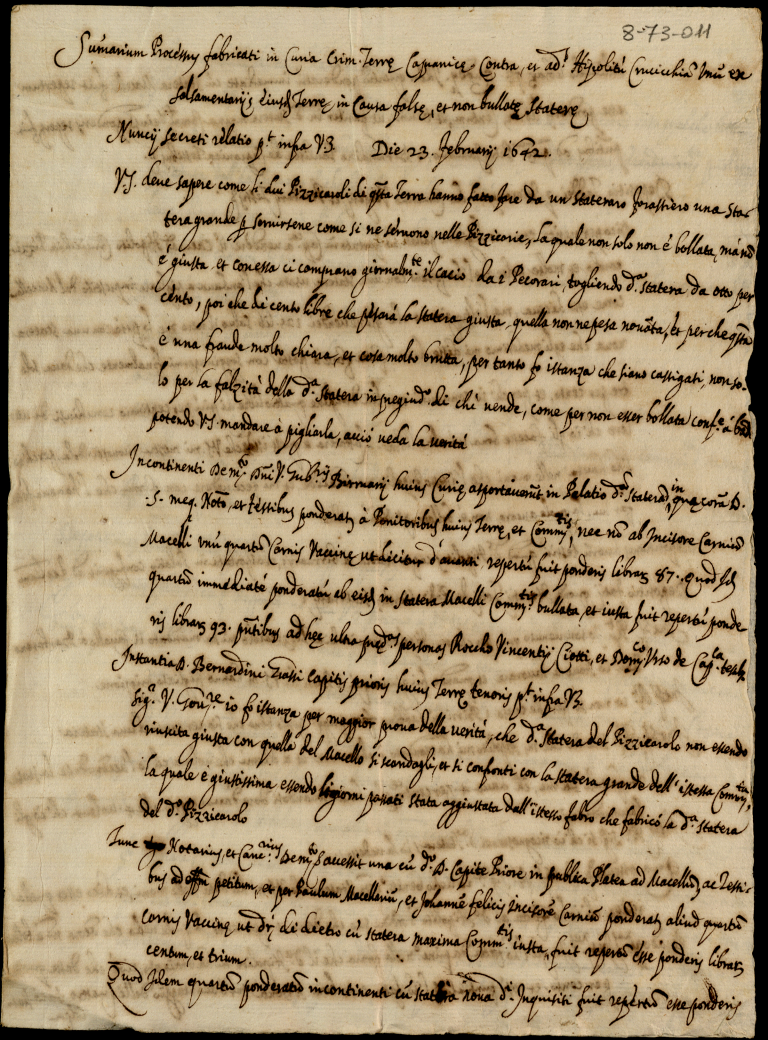 8-73-011
Sumarium Processus fabricati in Curia Crim. Terrę Capranicę Contra, et ad. Hippolitū Crucicchiā unū ex
salsamentarijs eiusd Terrę in Causa falsę, et non bullatę Staterę
Nuncij secreti relatio pt infra V3 Die 23. februarij 1642.
V.S. deve sapere come li dui Pizzicaroli di qsta Terra hanno fatto fare da un Stateraro forastiero una Sta-
tera grande p servirsene come si ne servono nelle Pizzicarie, la quale non solo non è bollata, mà nō
è giusta, et con essa ci comprano giornalmte il cacio da i Pecorari, togliendo da statera da otto per
cento, poi che di cento libre che pesarà la statera giusta, quella non ne pesa novāta, et perche qsta
è una fraude molto chiara, et cosa molto brutta, per tanto fo istanza che siano castigati, non so-
lo per la falzità della da Statera in pregiudo di chi vende, come per non esser bollata confe à
potendo V.S. mandare a pigliarla, acciò veda la verità
Incontinenti de mto Dni V. Gubrij Birruarij huius Curię asportaverūt in Palatio dā Staterā, in qua corā D.
S. meq. Noto, et testibus ponderatȝ à Ponitoribus huius Terrę, et Commtis, nec nō ab Incisore Carniū
Macelli unū quartū Carnis Vaccinę ut dicitur d'avanti repertū fuit ponderis librarȝ 87. quod
quartū immediate ponderatū ab eisd in statera Macelli Commtis bullata, et iusta fuit repertū ponde
ris librarȝ 93. pntibus ad hęc ultra predas personas Roccho Vincentij Ciotti, et Domco Urso de Capca testib.
Instantia D. Bernardini Grassi Capitis prioris huius Terrę tenoris pt infra V3.
Sigr V. Govre io fo istanza per maggior prova della verità, che da Statera del Pizzicarolo non essendo
riuscita giusta con quella del Macello si scandagli, et si confonti con la statera grande dell'istessa Commtà,
la quale è giustissima essendo li giorni passati stata aggiustata dall'istesso fabro che fabricò la da Statera
del do Pizzicarolo
Tunc Notarius, et Canrius de mto accessit una cū do D. Capite Priore in publica Platea ad Macellū, ac Testi-
bus ad petitum, et per Paulum Macellariū, et Johannē felicis Incisorē Carniū ponderatȝ aliud quartū
Carnis Vaccinę ut dr di dietro cū statera maxima Commtis iusta, fuit repertū esse ponderis librarȝ
centum, et trium.
Quod Idem quartū ponderatū incontinenti cū statera nova di Inquisiti fuit repertū esse ponderis